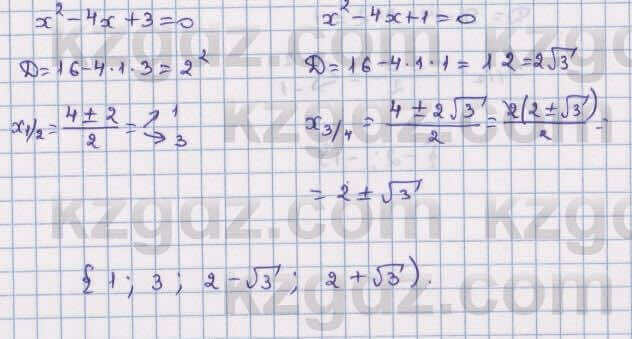 x² - 4x + 3 = 0
Д = 16 - 4·1·3 = 2²
x₁/₂ = (4 ± 2)/2 = ↗ 1 → 3
x² - 4x + 1 = 0
Д = 16 - 4·1·1 = 12 = 2√3
x₃/₄ = (4 ± 2√3)/2 = 2(2 ± √3)/2 =
= 2 ± √3
{ 1 ; 3 ; 2 - √3 ; 2 + √3 ).
kzgdz.com
kzgdz.com
kzgdz.com
kzgdz.com
kzgdz.com